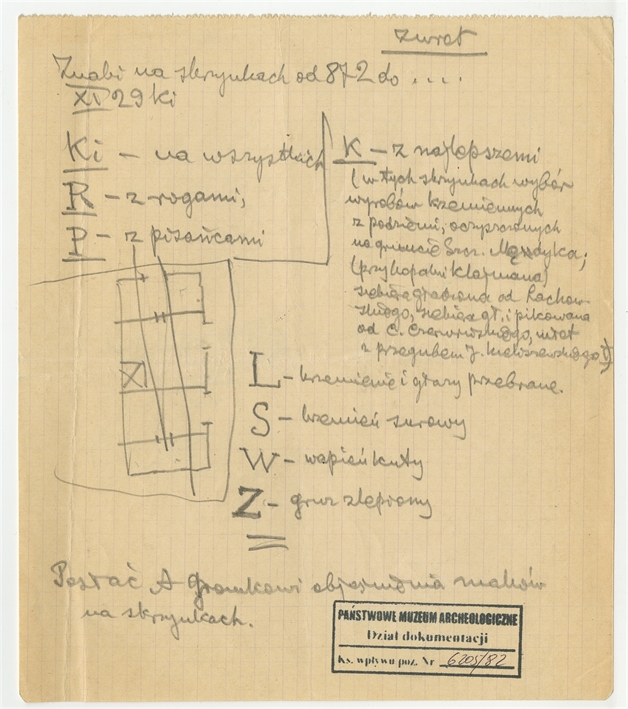 zwrot
Znaki na skrzynkach od 872 do ....
XI 29 Ki
Ki – na wszystkich
R – z rogami;
P – z pisańcami
K – z najlepszemi
(w tych skrzynkach wybór
wyrobów krzemiennych
z podziemi, oczyszczonych
na gruncie Szcz.
(przy kopalni
siekiera gładzona od Rachow-
skiego, siekiera gł. i pikowana
od C. Czerwińskiego, młot
z przegubem J.
L – krzemienie i głazy przebrane.
S – krzemień surowy
W – wapień kuty
Z – gruz zlepiony
Posłać A objaśnienia znaków
na skrzynkach.
PAŃSTWOWE MUZEUM ARCHEOLOGICZNE
Dział dokumentacji
Ks. wpływu poz. Nr 6205/82